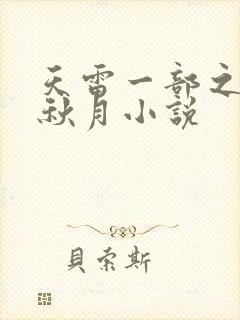 天雷一部之
秋月小說
貝索斯